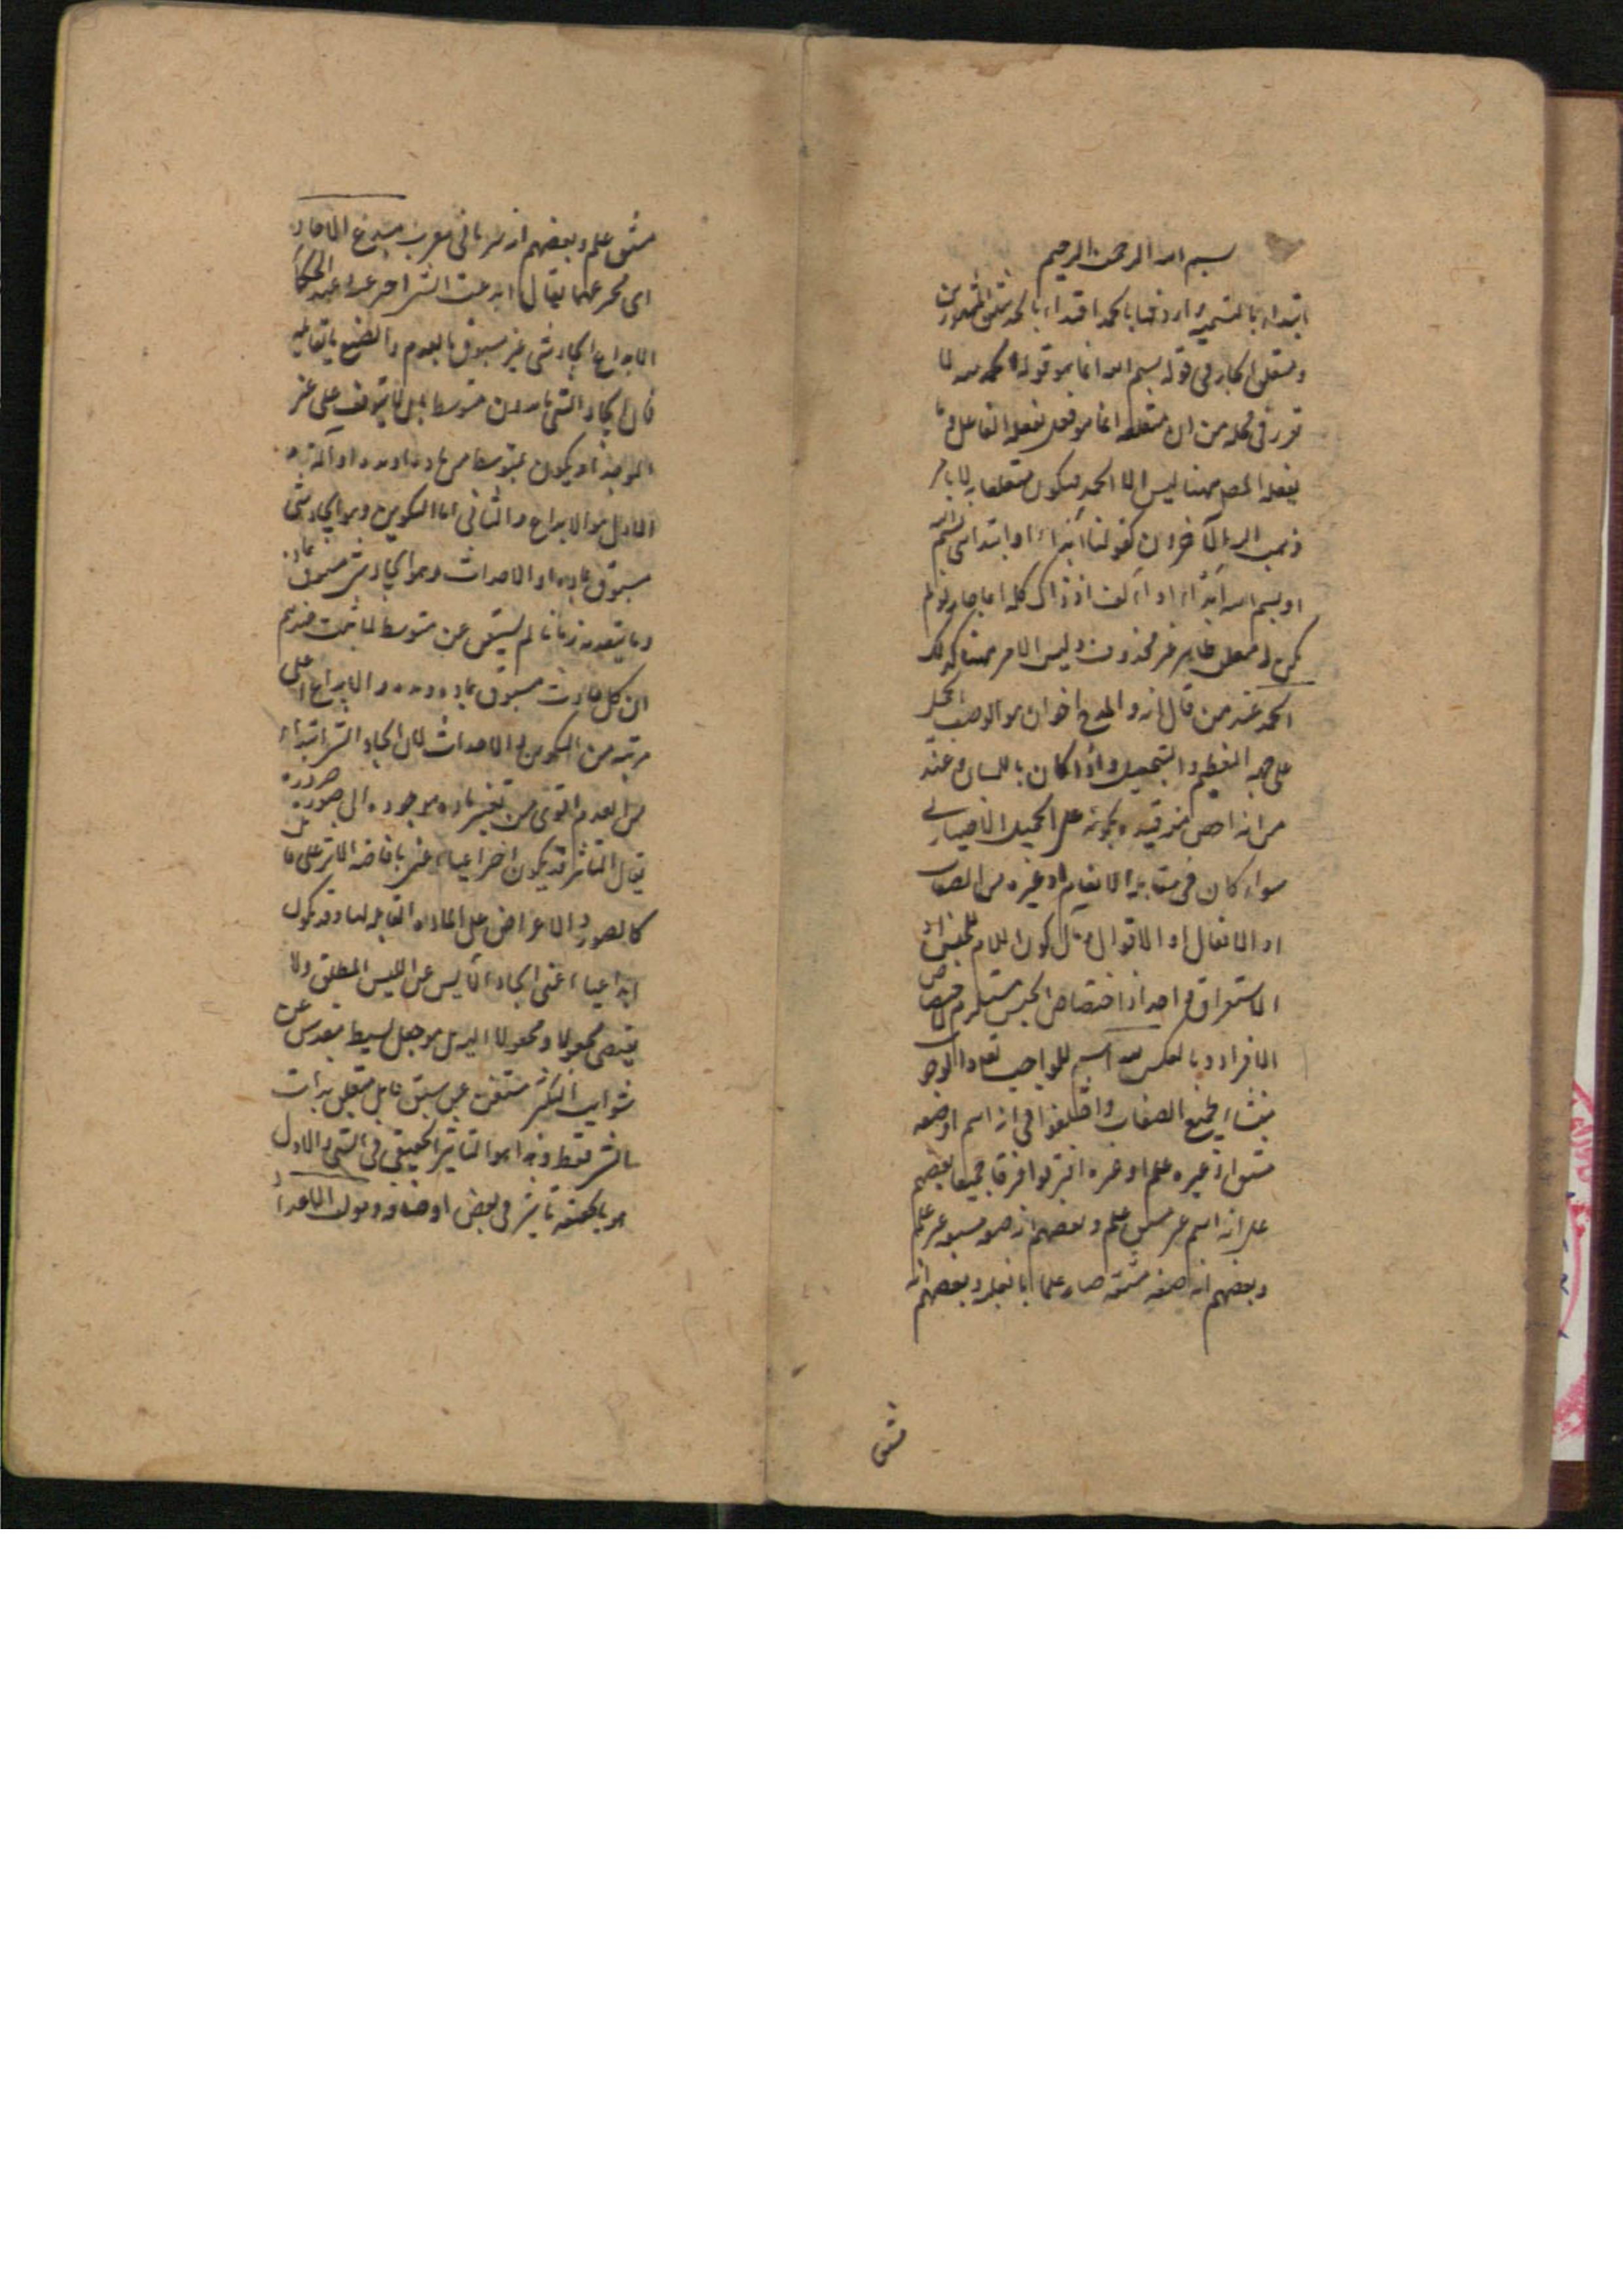 بسم الله الرحمن الرحيم
ابتداء بالتسمية واردفها بالحمد اقتداء بالحديثين المشهورين
ومتعلق الجار في قوله بسم الله انما هو قوله الحمد لله لما
تقرر في محله من ان متعلقه انما هو فعل يفعله الفاعل وما
يفعله المص ههنا ليس الا الحمد فيكون متعلقا به لا بما
ذهب اليه الآخرون كقولنا ابتداء او ابتدائي بسم الله
او بسم الله ابتداء او اذ ذاك كله انما جاز لو لم
يكن له متعلق ظاهر غير محذوف وليس الامر ههنا كذلك
الحمد عند من قال انه والمدح اخوان هو الوصف بالجميل
على جهة التعظيم والتبجيل واذا كان باللسان وعند
من انه اخص منه قيده بكونه على الجميل الاختياري
سواء كان في مقابلة الانعام او غيره من الصفات
او الافعال او الاقوال كون اللام للجنس او
الاستغراق واحد اذ اختصاص الجنس مستلزم لاختصاص
الافراد وبالعكس لله اسم للواجب تعالى الوجود
منشاء لجميع الصفات واختلفوا في انه اسم او صفة
مشتق او غيره علم او غيره افترقوا فرقا فجميعا بعضهم
على انه اسم غير مشتق علم وبعضهم انه صفة مشتقة غير علم
وبعضهم انه صفة مشتقة صار علما بالغلبة وبعضهم انه
مشتق
مشتق علم وبعضهم انه سرياني معرب مبدع الايجاد
اى مخترعها يقال ابدعت الشئ اخترعته وعند الحكماء
الابداع ايجاد شئ غير مسبوق بالعدم والصنع يقابله
فان ايجاد الشئ اما بدون متوسط بل لا يتوقف على غير
الموجد او يكون بتوسط من مادة او مدة او آلة
الاول هو الابداع والثاني اما التكوين وهو ايجاد شئ
مسبوق بمادة او الاحداث وهو ايجاد شئ مسبوق بمادة
وما يتقدمه زمانا لم يستغن عن متوسط لما ثبت عندهم
ان كل حادث مسبوق بمادة ومدة والابداع اعلى
مرتبة من التكوين والاحداث لان ايجاد الشئ ابتداء
من العدم اقوى من تغيير مادة موجودة الى صورة
يقال التاثير قد يكون اختراعيا اعني بافاضة الاثر على قابل
كالصور والاعراض على المادة القابلة لها وقد يكون
ابداعيا اعني ايجاد الايس عن الليس المطلق ولا
يقتضي مجعولا ومجعولا اليه بل هو جعل بسيط مقدس عن
شوائب التكثر مستغن عن سبق قابل متعلق بذات
الشئ فقط وهذا هو التاثير الحقيقي في الشئ والاول
هو بالحقيقة تاثير في بعض اوصافه